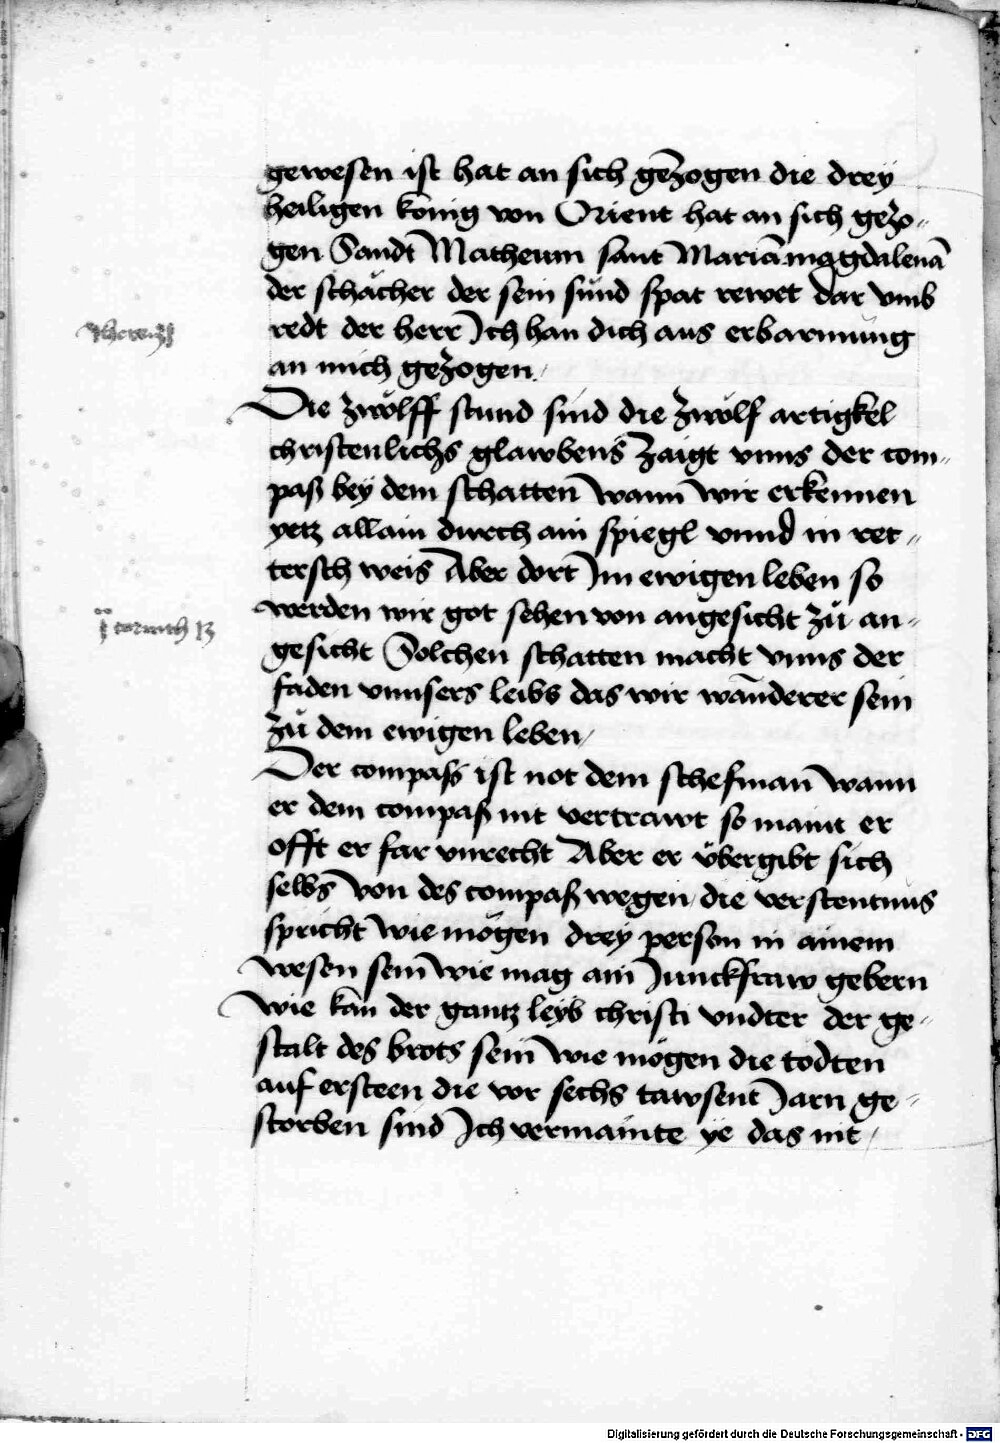 gewesen ist hat an sich gezogen die drey
heiligen könig von Orient hat an sich gezo„
gen Sandt Matheum sant Mariā magdalenā
der schächer der sein sünd spat rewet dar vmb
redt der herr Ich han dich aus erbarmung
an mich gezogen /
Die zwölff stund sind die zwölf artigkel
christenlichs glawbens zaigt vnns der com„
paß bey dem schatten wann wir erkennen
yetz allain durch ain spiegl vnnd in ret„
tersch weis Aber dort Im ewigen leben so
werden wir got sehen von angesicht zů an„
1 corinth 13
gesicht Solchen schatten macht vnns der
faden vnnsers leibs das wir wanderer sein
zů dem ewigen leben /
Der compaß ist not dem schefman wann
er dem compaß nit vertrawt so maint er
offt er far vnrecht Aber er übergibt sich
selbs von des compaß wegen / die verstentnus
spricht wie mögen drey person in ainem
wesen sein wie mag ain Junckfraw gebern
wie kan der gantz leyb christi vndter der ge„
stalt des brots sein wie mögen die todten
auf ersteen die vor sechs tawsent Jarn ge„
storben sind Ich vermainte ye das nit /
Digitalisierung gefördert durch die Deutsche Forschungsgemeinschaft - DFG